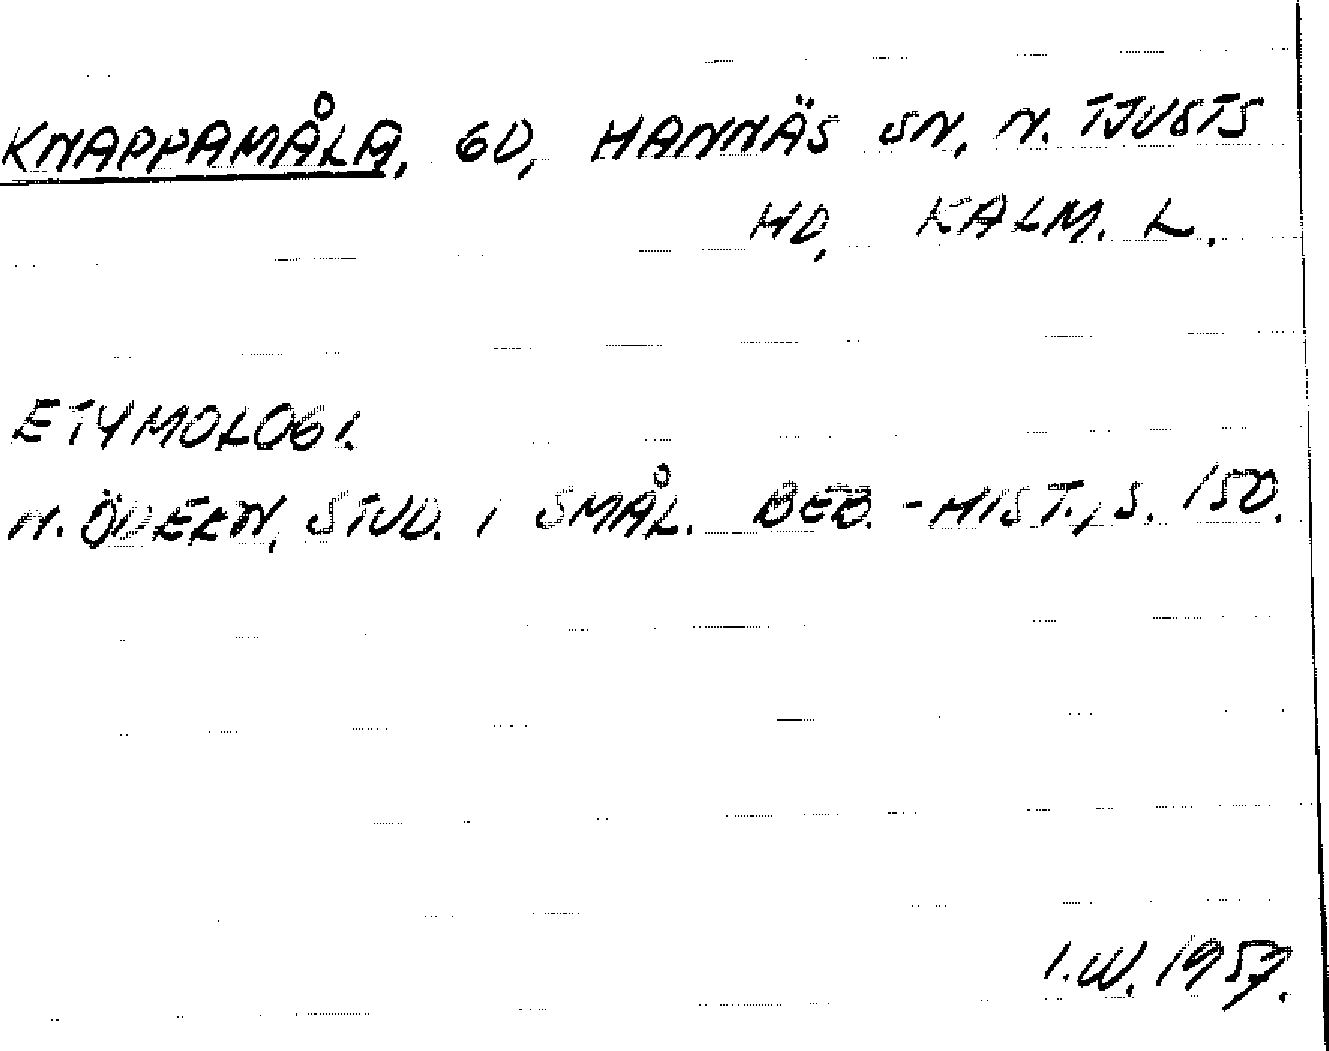 KNAPPAMÅLA, GD, HANNÄS SN, N. TJUSTS
HD, KALM. L.
ETYMOLOGI.
N. ÖDEEN, STUD. I SMÅL. BEB.-HIST., S. 150.
I.W. 1957.